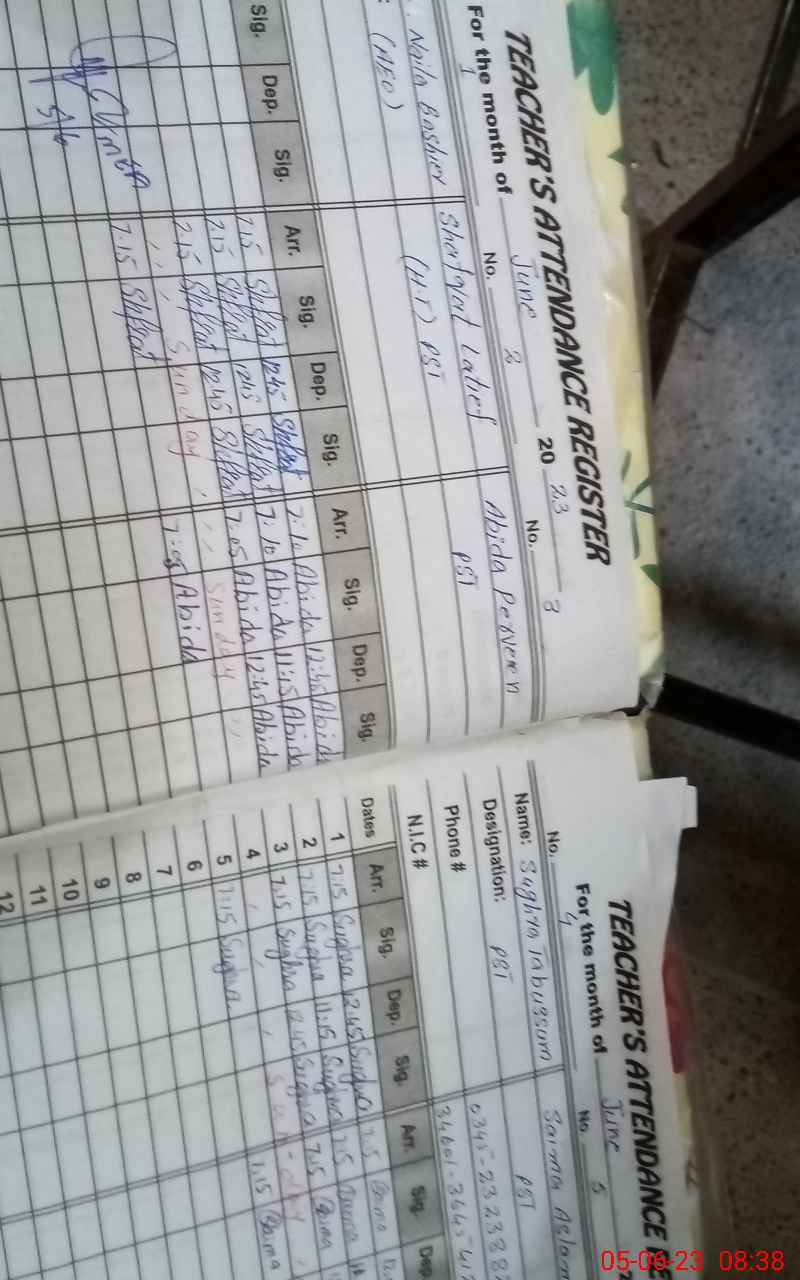 TEACHER'S ATTENDANCE REGISTER
For the month of June 2023
1 No. 2 No. 3
Naila Bashir Shafqat Latief Abida Perveen
(AEO) (H.T) PST PST
Sig. Dep. Sig. Arr. Sig. Dep. Sig. Arr. Sig. Dep. Sig.
7.15 Shafqat 12:45 Shafqat 7:10 Abida 12:45 Abida
7.15 Shafqat Shafqat 7:10 Abida 11:15 Abida
7.15 Shafqat 12:45 Shafqat 7:05 Abida 12:45 Abida
Sunday Sunday
7.15 Shafqat 7:05 Abida
5/6
TEACHER'S ATTENDANCE RE
For the month of June
No. 4 No. 5
Name: Sughra Tabussum Saima Aslam
Designation: PST PST
Phone # 0345-232388
N.I.C # 34601-3645412
Dates Arr. Sig. Dep. Sig. Arr. Sig. Dep
1 7:15 Sughra 12:45 Sughra 7.15 Saima
2 7:15 Sughra 11:15 Sughra 7.15 Saima
3 7:15 Sughra 12:45 Sughra 7.15 Saima
4 Sun-day
5 7:15 Sughra 7.15 Saima
6
7
8
9
10
11
12
05-06-23 08:38